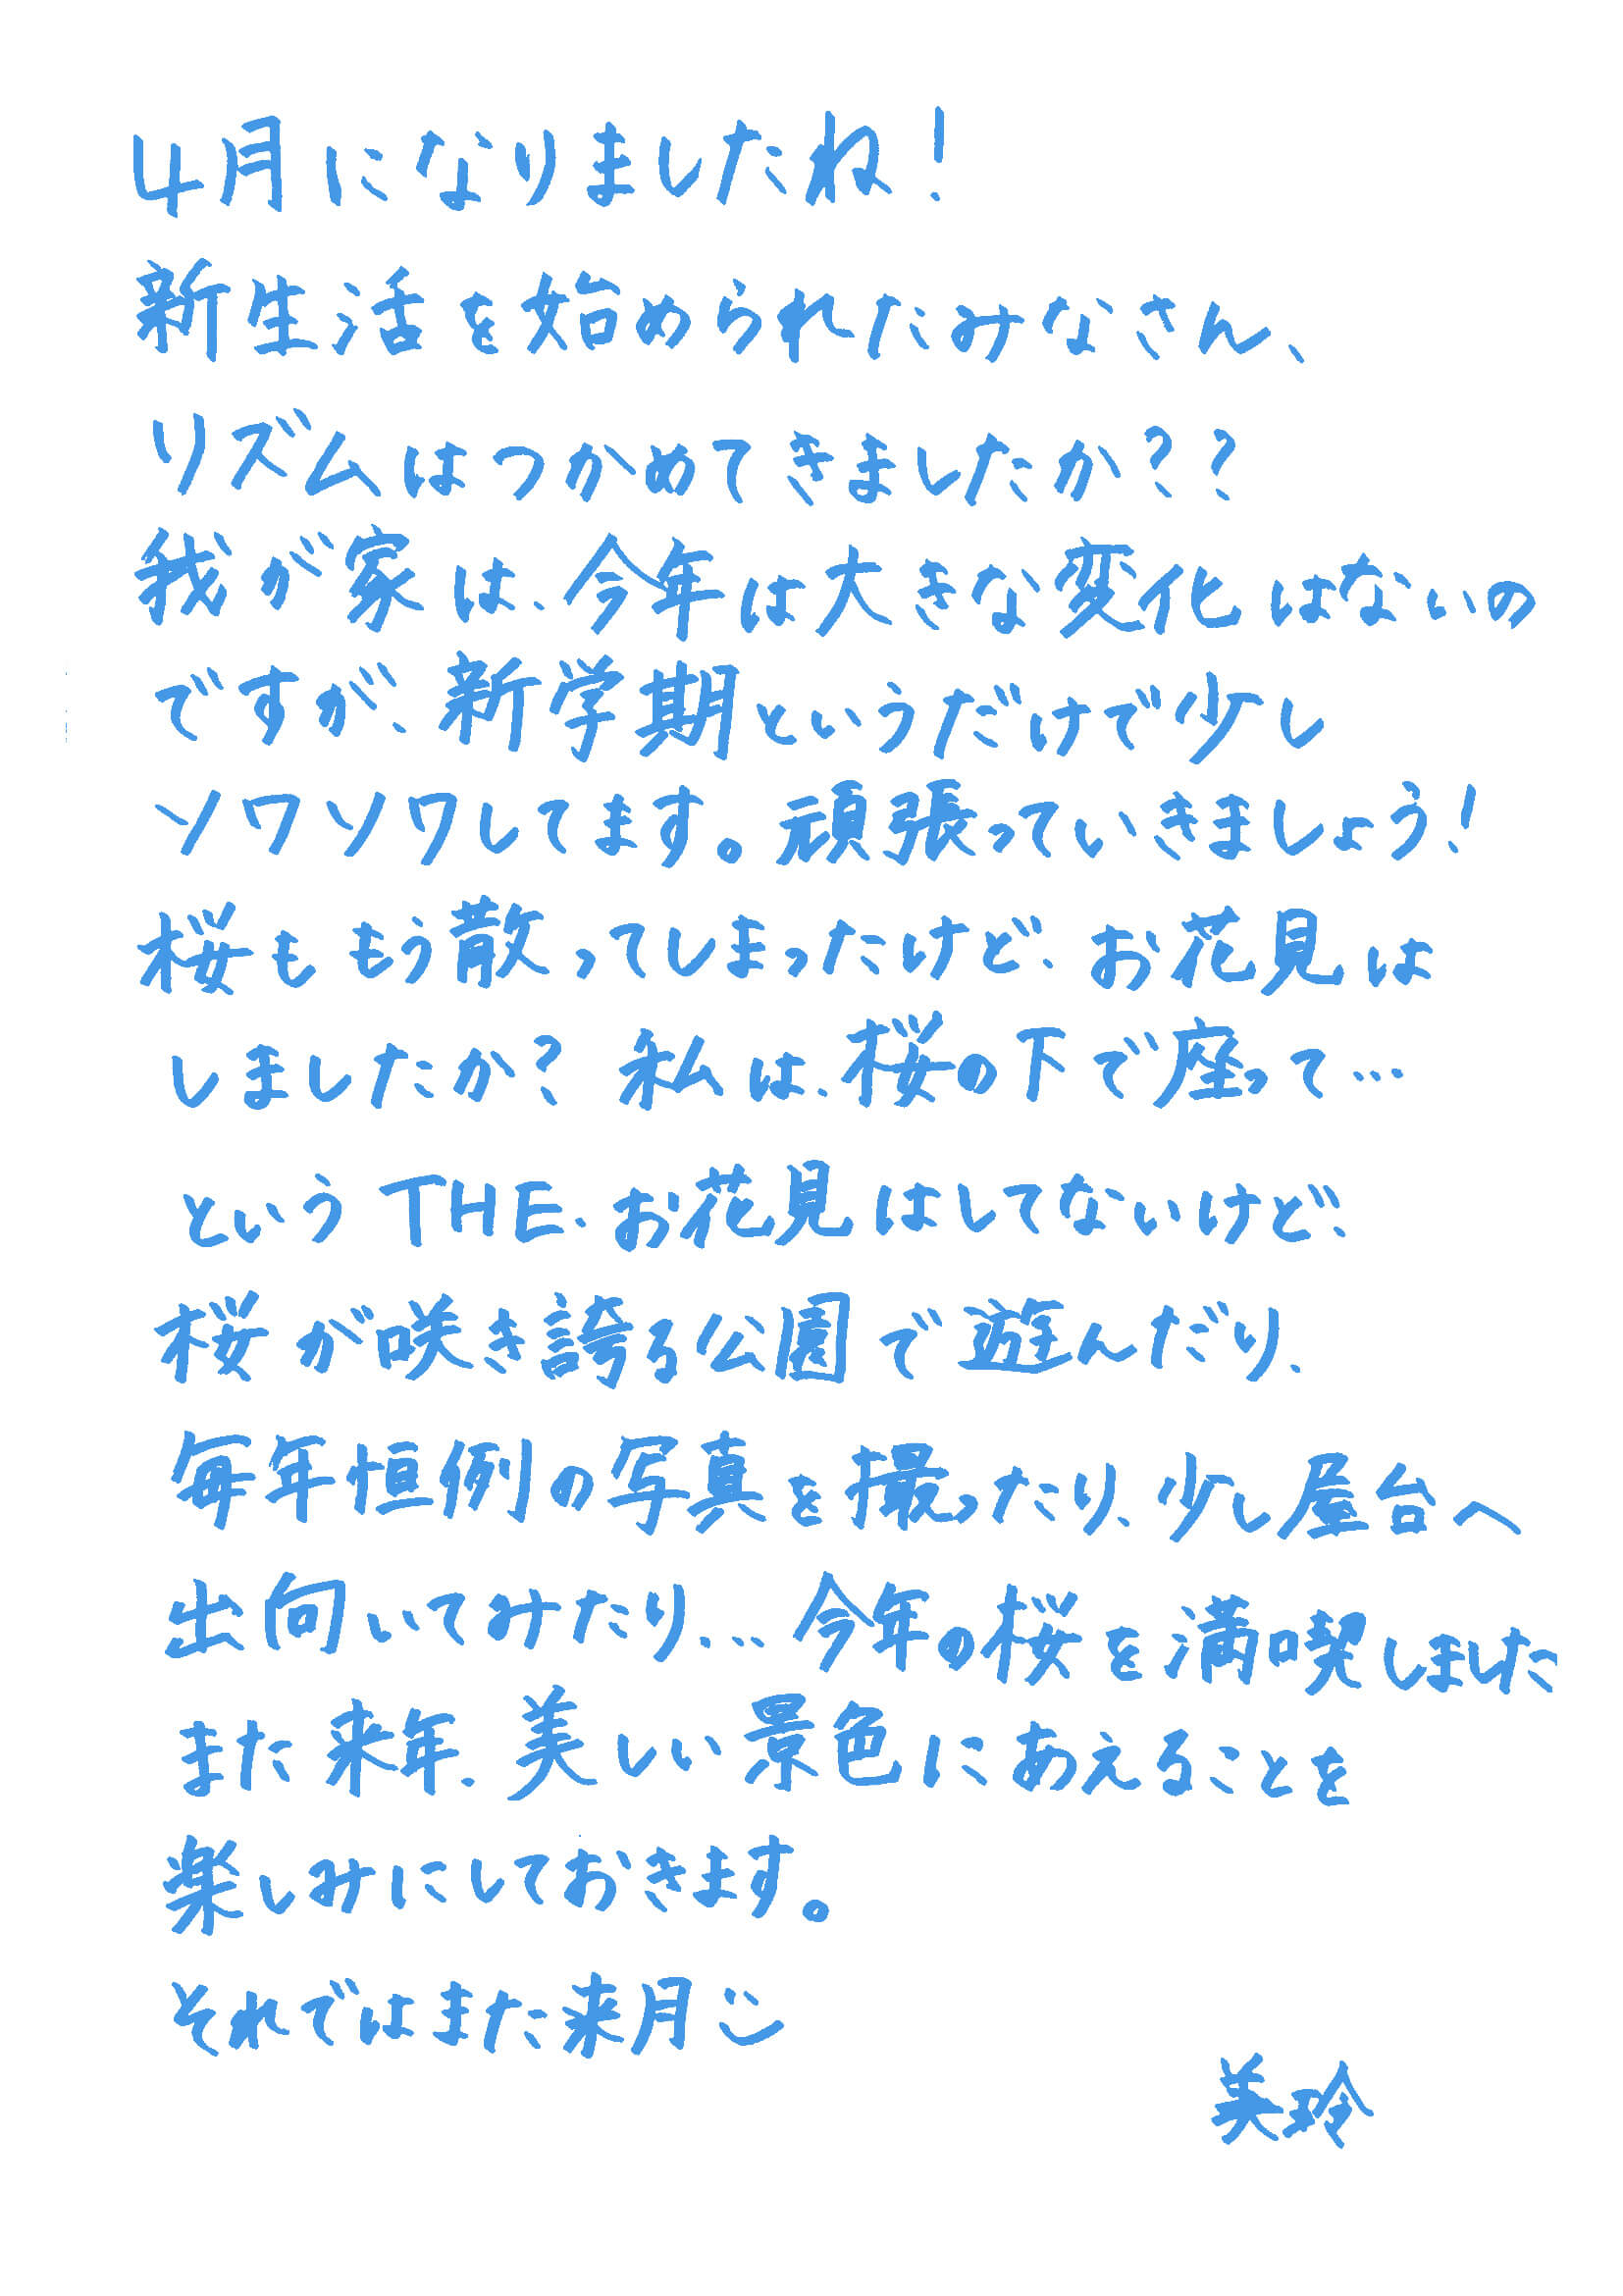 4月になりましたね!
新生活を始められたみなさん、
リズムはつかめてきましたか??
我が家は、今年は大きな変化はないの
ですが、新学期というだけで少し
ソワソワしてます。頑張っていきましょう!
桜ももう散ってしまったけど、お花見は
しましたか? 私は、桜の下で座って…
というTHE・お花見はしてないけど、
桜が咲き誇る公園で遊んだり、
毎年恒例の写真を撮ったり、少し屋台へ
出向いてみたり、…今年の桜を満喫しました
また来年、美しい景色にあえることを
楽しみにしておきます。
それではまた来月
美玲